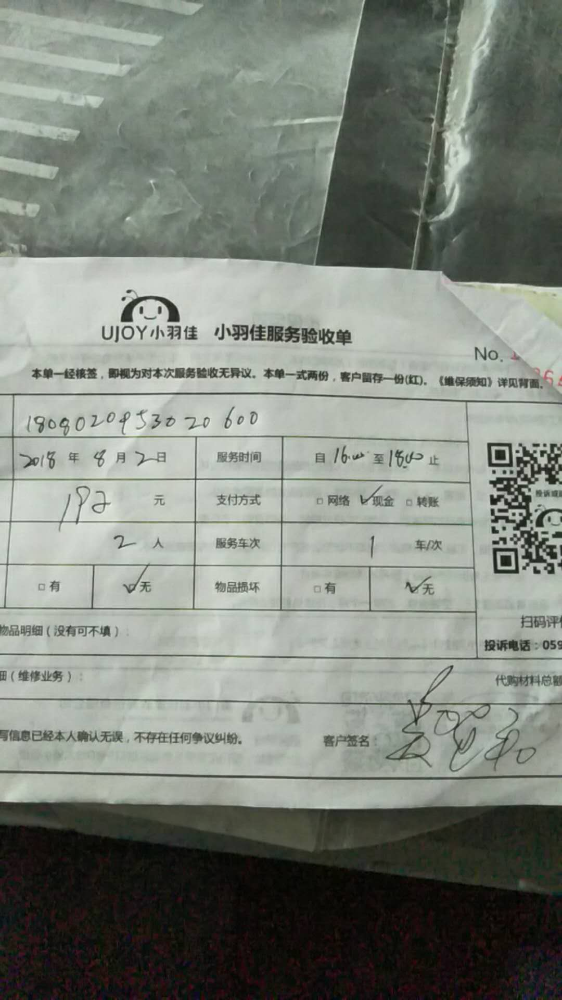 UJOY小羽佳 小羽佳服务验收单
No.
本单一经核签，即视为对本次服务验收无异议。本单一式两份，客户留存一份(红)。《维保须知》详见背面。
1808020953020600
2018 年 8 月 2 日 服务时间 自 16:00 至 18:00 止
192 元 支付方式 □网络 ☑现金 □转账
2 人 服务车次 1 车/次
□有 ☑无 物品损坏 □有 ☑无
扫码评
物品明细（没有可不填）：
投诉电话：059
（维修业务）：
代购材料总额
写信息已经本人确认无误，不存在任何争议纠纷。 客户签名：